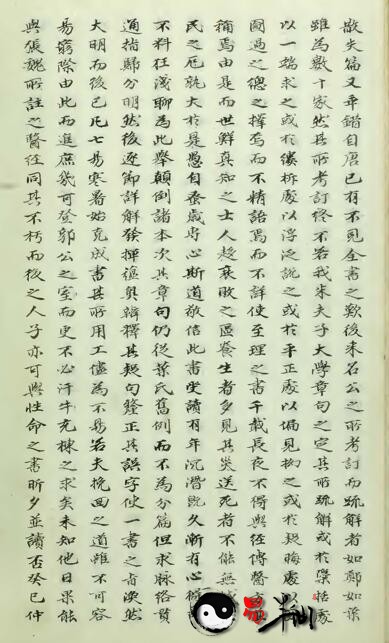 散失篇又舛錯自唐已有不見全書之歎後來名公之所考訂而疏解者如鄭如葉
雖為數十家然其所考訂終不若我朱夫子大學章句之定其所疏解或於槩括處
以一端求之或於縷析處以浮泛說之或於平正處以偏見拘之或於疑晦處
圖過之總之擇焉而不精語焉而不詳使至理之書千載長夜不得與經傳醫方
稱焉由是而世鮮真知之士人趍衰敗之區養生者多見其災送死者不能無
民之厄孰大於是愚自蚤歲専心斯道敬信此書坐讀有年沉潛既久漸有心
不料狂淺聊為此舉顛倒諸本次其章句仍從葉氏舊例而不為分篇但求脉絡貫
通指歸分明然後逐節詳解發揮蘊奧辯釋其疑句釐正其誤字使一書之旨渙然
大明而後已凡七易寒暑始克成書其所用工儘為不易若夫挽回之道雖不可容
易窮際由此而進庶幾可登郭公之室而更不必汗牛充棟之求矣未知他日果能
與張魏所註之醫經同其不朽而後之人子亦可與性命之書昕夕並讀否癸巳仲